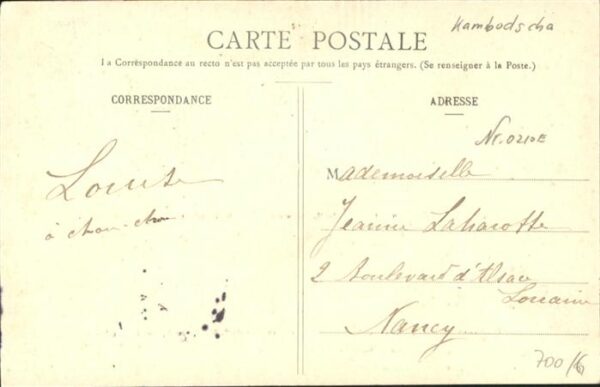 Kambodscha
CARTE POSTALE
La Correspondance au recto n'est pas acceptée par tous les pays étrangers. (Se renseigner à la Poste.)
CORRESPONDANCE
ADRESSE
Nr. 0210E
Louise
à chou-chou
Mademoiselle
Jeanne Laharotte
2 Boulevard d'Alsace
Lorraine
Nancy
700/6